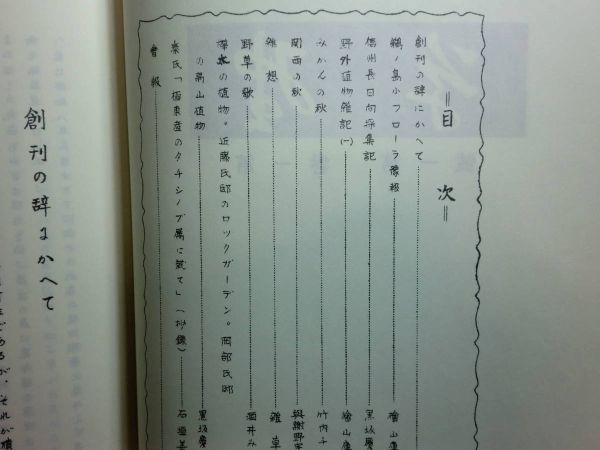 ＝目次＝
創刊の辞にかへて
鵜ノ島小フローラ豫報 檜山庫
信州長日向採集記 黒坂慶
野外植物雑記(一) 檜山庫
みかんの秋 竹内千
関西の秋 與謝野
雑想 雑草
野草の歌 酒井み
の植物。近藤氏邸のロックガーデン。岡部氏邸
の高山植物 黒坂慶
秦氏「極東産のタチシノブ属に就て」(抄録) 石垣
會報
創刊の辞にかへて
であるが、それが